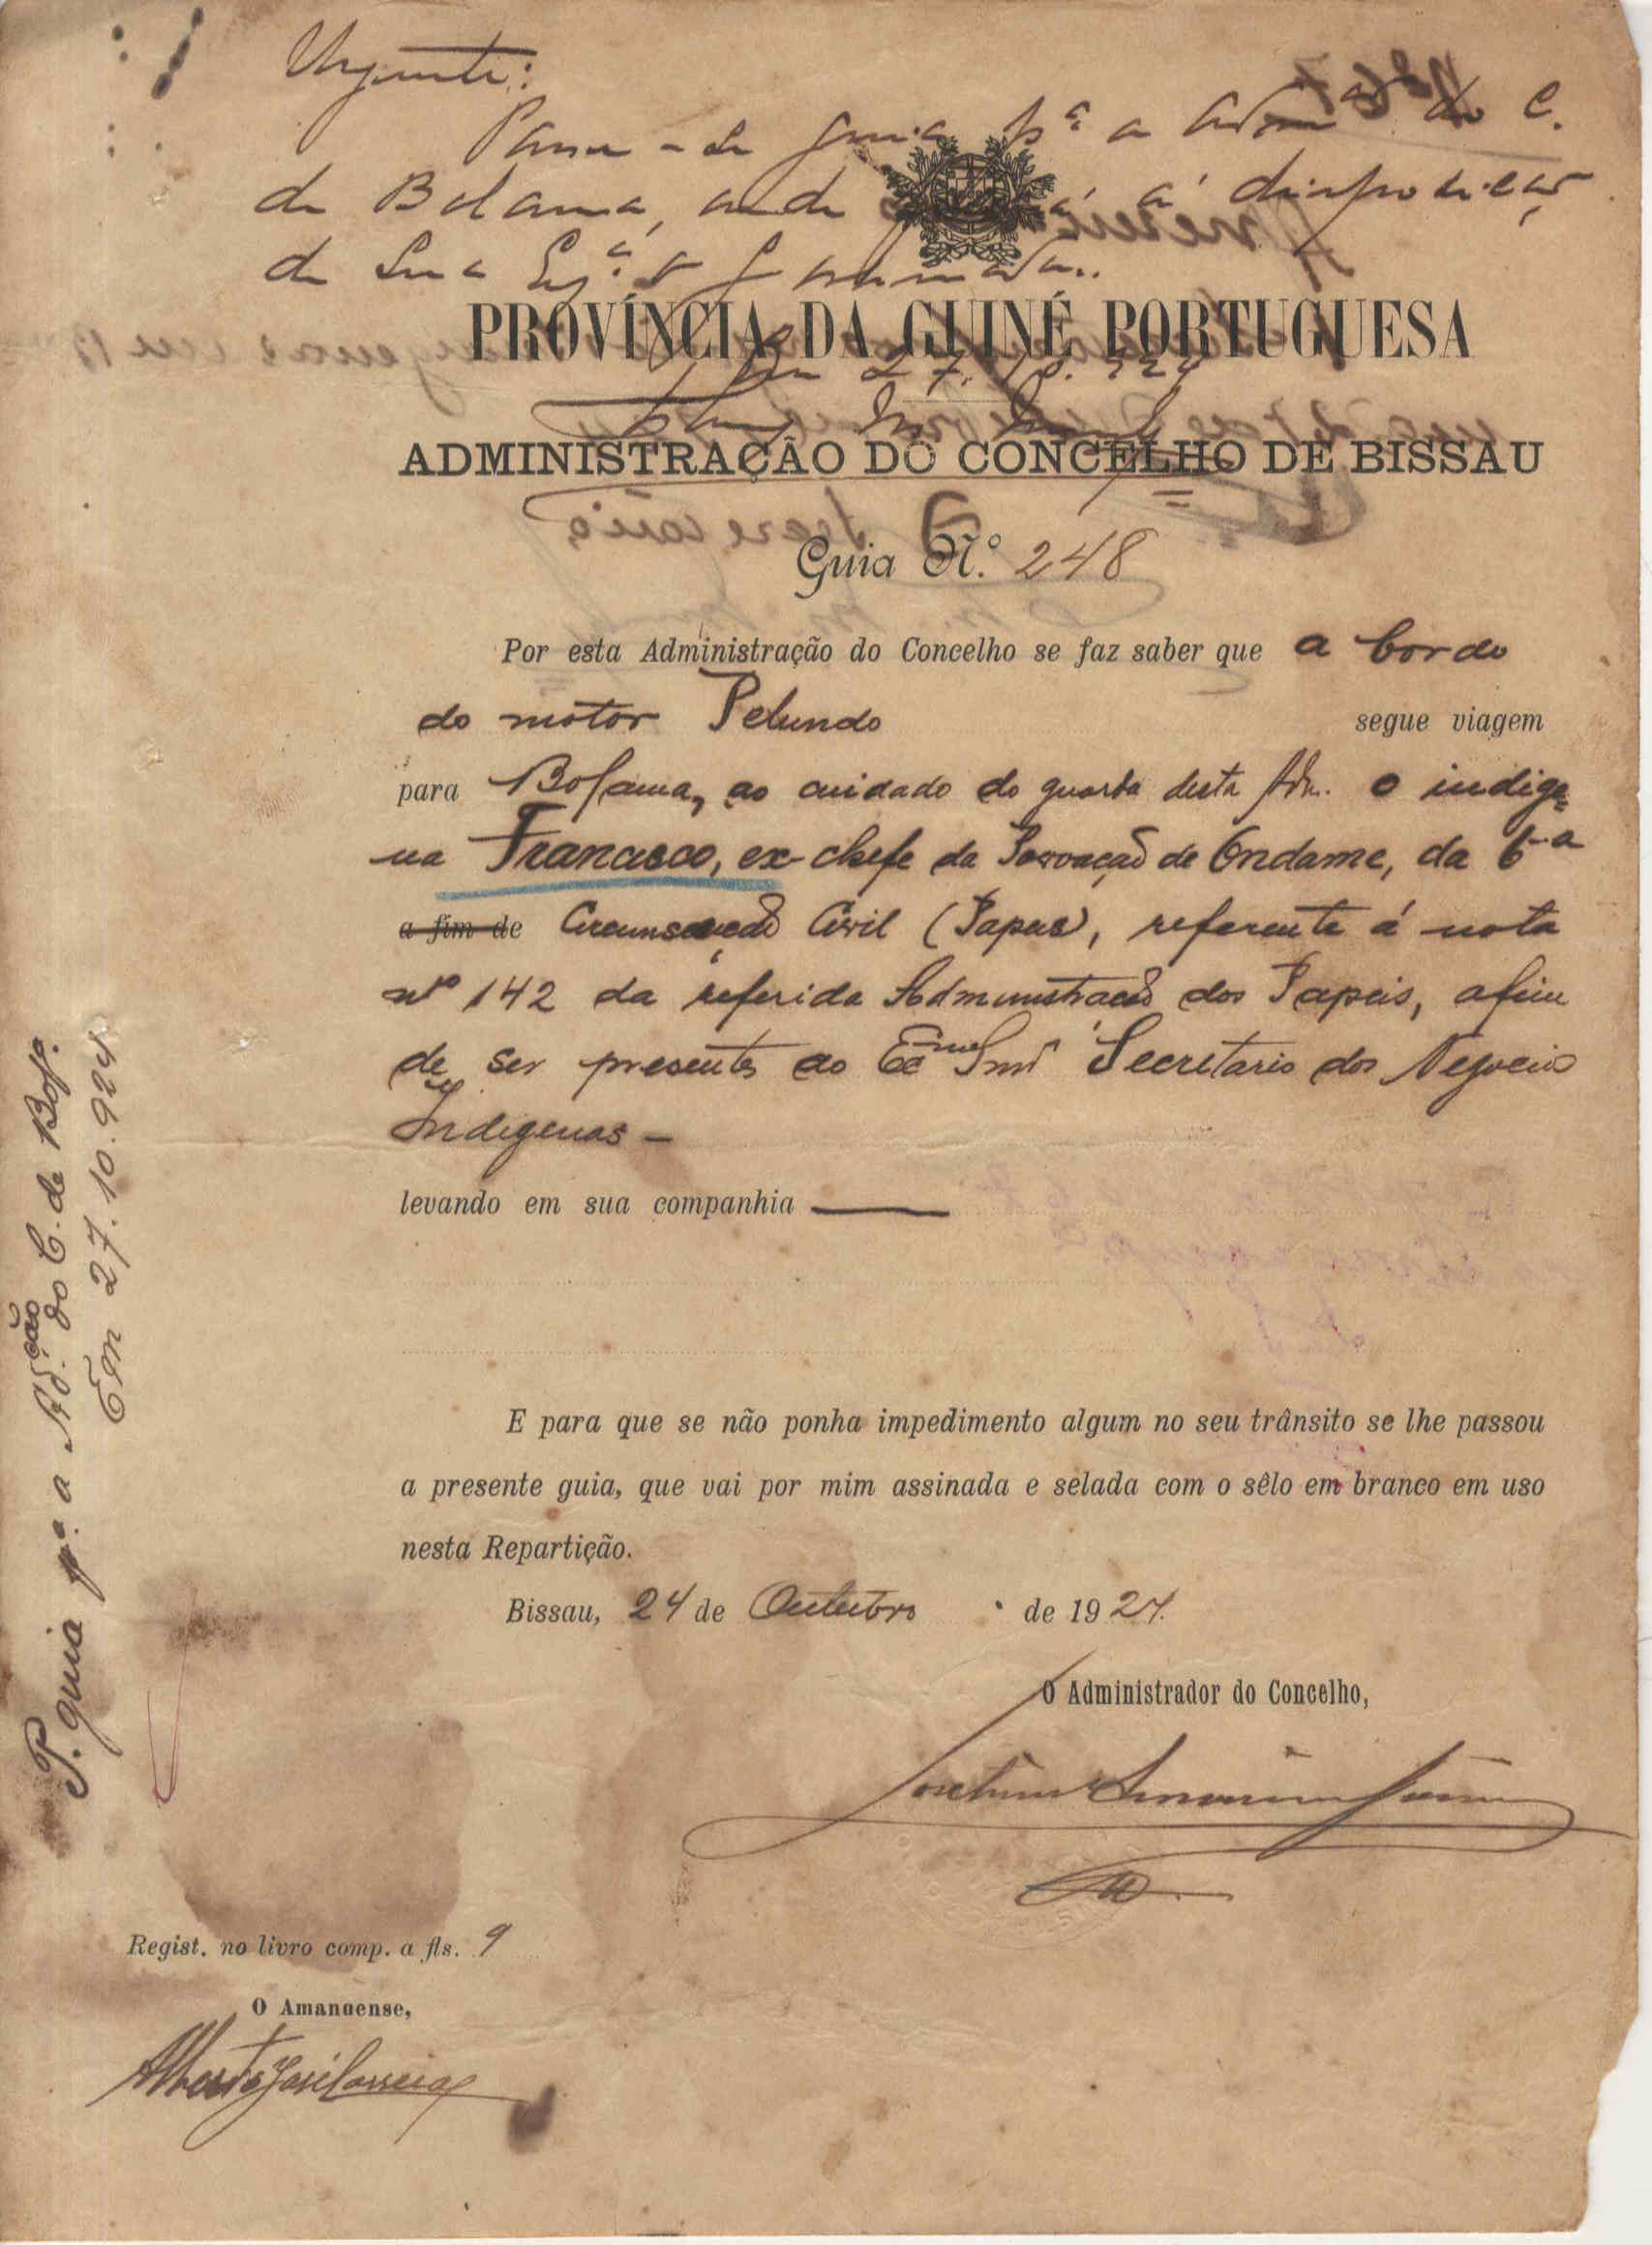 Urgente:
Passe-se guia pª a Admão do C.
de Bolama, onde á disposição
de Sua Exª o
PROVÍNCIA DA GUINÉ PORTUGUESA
Em 27.10.924
ADMINISTRAÇÃO DO CONCELHO DE BISSAU
Guia N.º 248
Por esta Administração do Concelho se faz saber que a bordo
do motor Pelundo segue viagem
para Bolama, ao cuidado do guarda desta Adm. o indige-
na Francisco, ex-chefe da Povoação de Ondame, da 6ª
a fim de Circunscrição Civil (Papeis), referente á nota
nº 142 da referida Administração dos Papeis, afim
de ser presente ao Exmo Snr Secretario dos Negocios
Indigenas —
levando em sua companhia —
E para que se não ponha impedimento algum no seu trânsito se lhe passou
a presente guia, que vai por mim assinada e selada com o sêlo em branco em uso
nesta Repartição.
Bissau, 24 de Outubro de 1924.
O Administrador do Concelho,
Regist. no livro comp. a fls. 9
O Amanuense,
Alberto José Correia
P. guia pª a Ad.ção do C. de Bolª.
Em 27.10.924